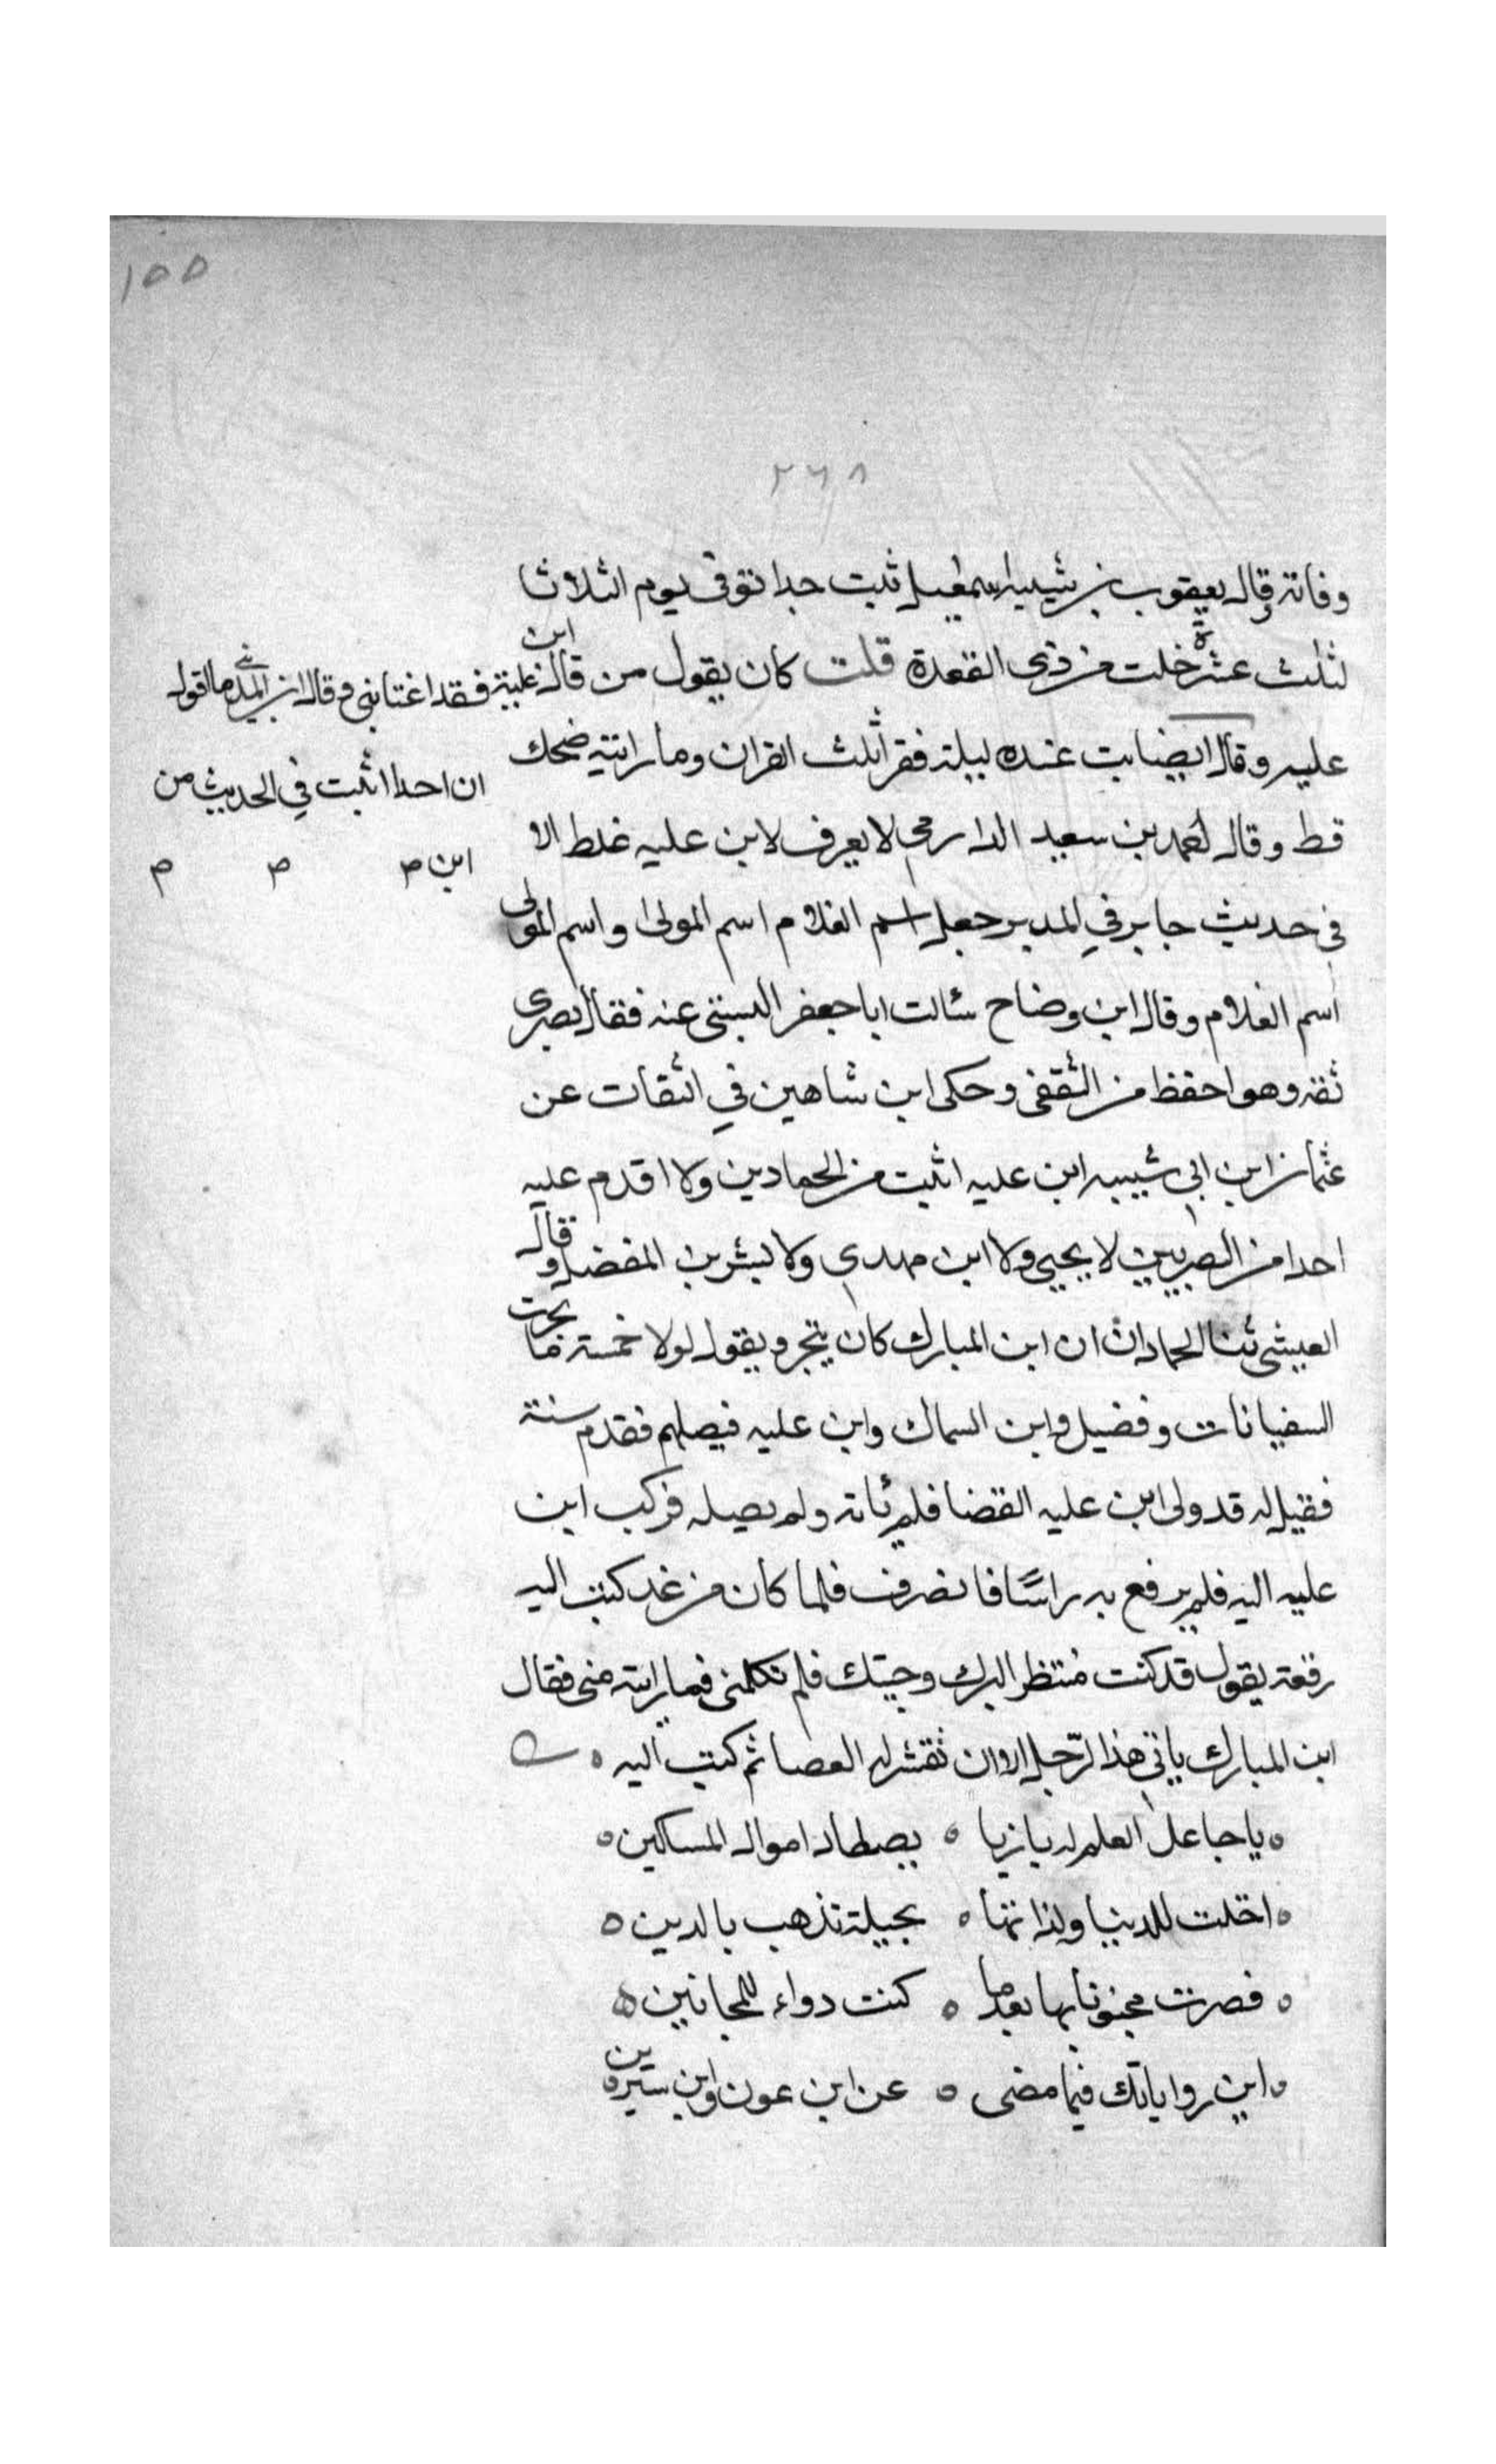 ١٥٥
٢٦٨
وفاته وقال يعقوب بن شيبه اسمعيل ثبت جدا توفى يوم الثلاثا
لثلث عشرة خلت من ذى القعدة قلت كان يقول من قال ابن علية فقد اغتابنى وقال ابن المدينى ما اقول
عليه وقال ايضا بت عنده ليلة فقرا ثلث القران وما رايته ضحك
ان احدا اثبت في الحديث من
قط وقال احمد بن سعيد الدارمى لا يعرف لابن عليه غلط الا
ابن
فى حديث جابر في المدبر جعل اسم الغلام اسم المولى واسم المولى
اسم الغلام وقال ابن وضاح سئالت ابا جعفر البستى عنه فقال بصرى
ثقة وهو احفظ من الثقفى وحكى ابن شاهين في الثقات عن
عثمان ابن ابى شيبه ابن عليه اثبت من الحمادين ولا اقدم عليه
احدا من البصريين لا يحيى ولا ابن مهدى ولا بشر بن المفضل وقال
العيشى ثنا الحمادان ان ابن المبارك كان يتجر ويقول لولا خمسة ما تجرت
السفيانات وفضيل وابن السماك وابن عليه فيصلهم فقدم سنة
فقيل له قد ولى ابن عليه القضا فلم ئاته ولم يصله فركب ابن
عليه اليه فلم يرفع به راسًا فانصرف فلما كان من غد كتب اليه
رقعة يقول قد كنت منتظر البرك وجيتك فلم تكلمنى فما رايته منى فقال
ابن المبارك يا تى هذا الرّجل الا ان تقشر له العصا ثم كتب اليه
يا جاعل العلم له بازيا يصطاد اموال المساكين
احتلت للدنيا ولذاتها بحيلة تذهب بالدين
فصرت مجنونا بها بعد ما كنت دواء للمجانين
اين رواياتك فيما مضى عن ابن عون وابن سيرين